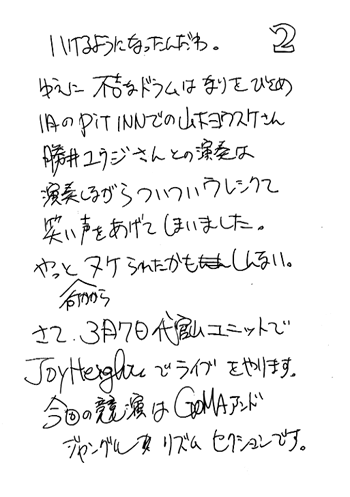 2
いけるようになったんだわ。
ゆえに 不吉なドラムは なりをひそめ
1月のPiT INNでの山本ヨウスケさん
勝井ユウジさんとの演奏は
演奏しながらついついウレシクて
笑い声をあげてしまいました。
やっと ヌケられたかもしんない。
何かから
さて、3月7日代官山ユニットで
JOYHeightsでライブをやります。
今回の競演は GOMAアンド
ジャングル リズム セクションです。